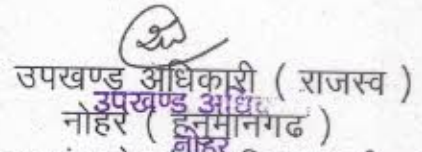 उपखण्ड अधिकारी ( राजस्व )
उपखण्ड अधि
नोहर ( हनुमानगढ )
नोहर